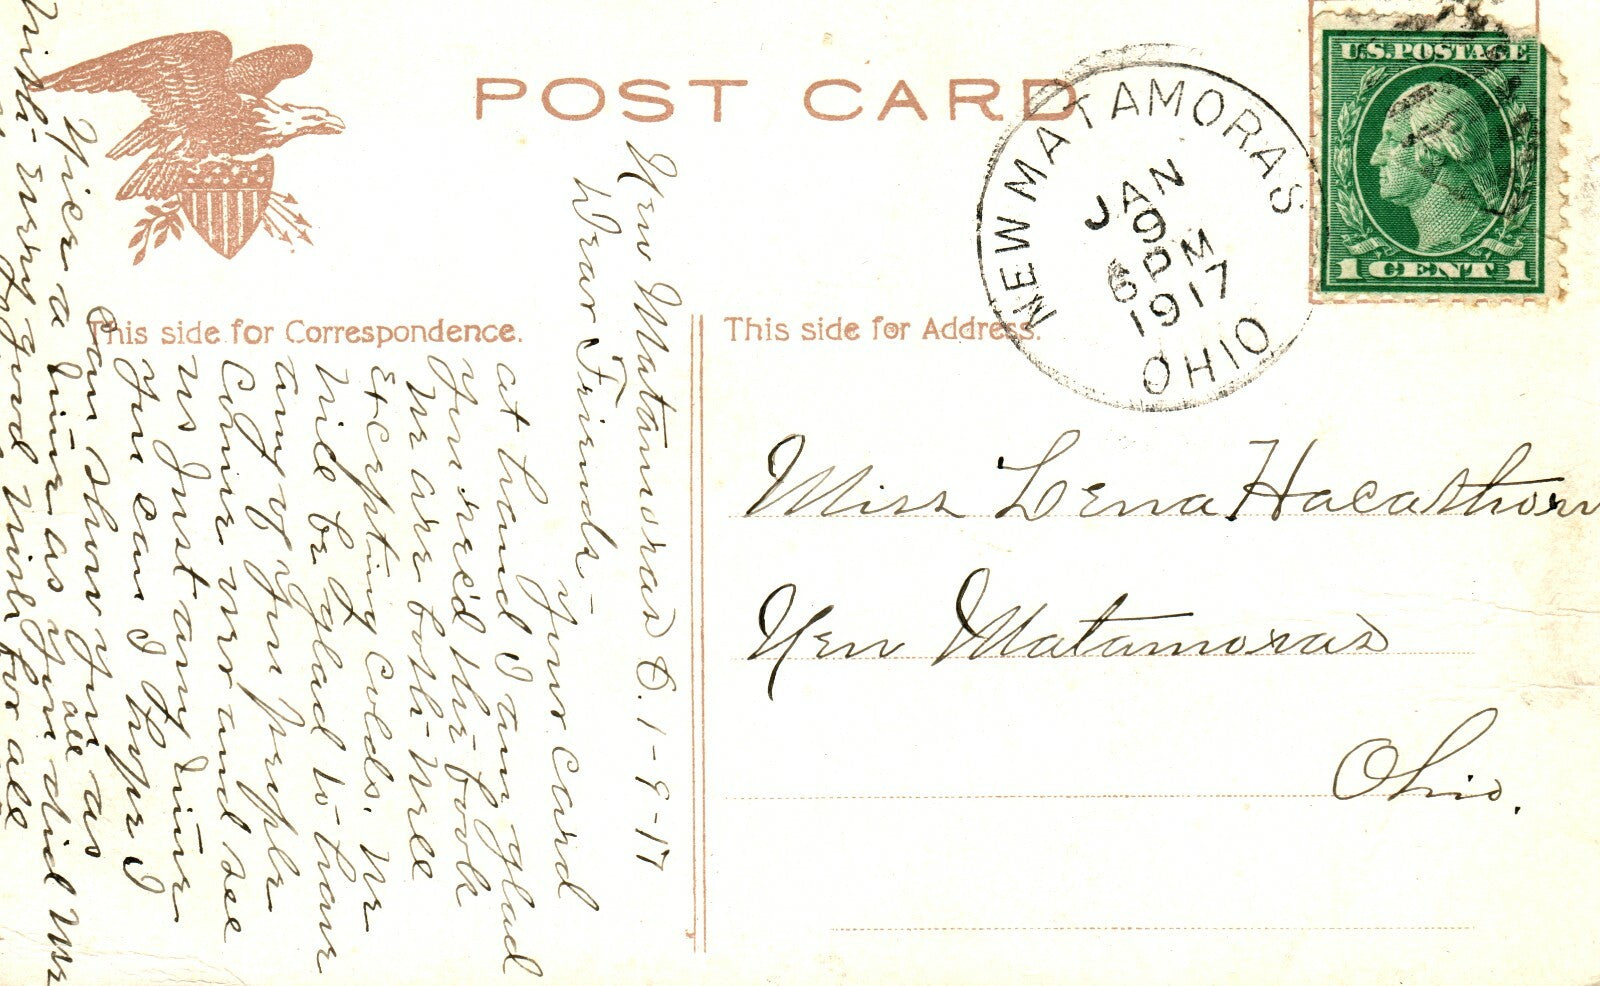 POST CARD
This side for Correspondence.
This side for Address.
U.S.POSTAGE
1 CENT 1
NEW MATAMORAS
JAN
9
6 PM
1917
OHIO
Miss Lena Hacathorn
New Matamoras
Ohio.
New Matamoras O. 1-9-17
Dear Friends-
your card
at hand I am glad
you rec'd the book
We are both well
excepting colds. We
will be glad to have
any of you people
come over and see
us Just any time
you can I hope I
can show you as
Nice a time as you all did me
With- very good wishes for all